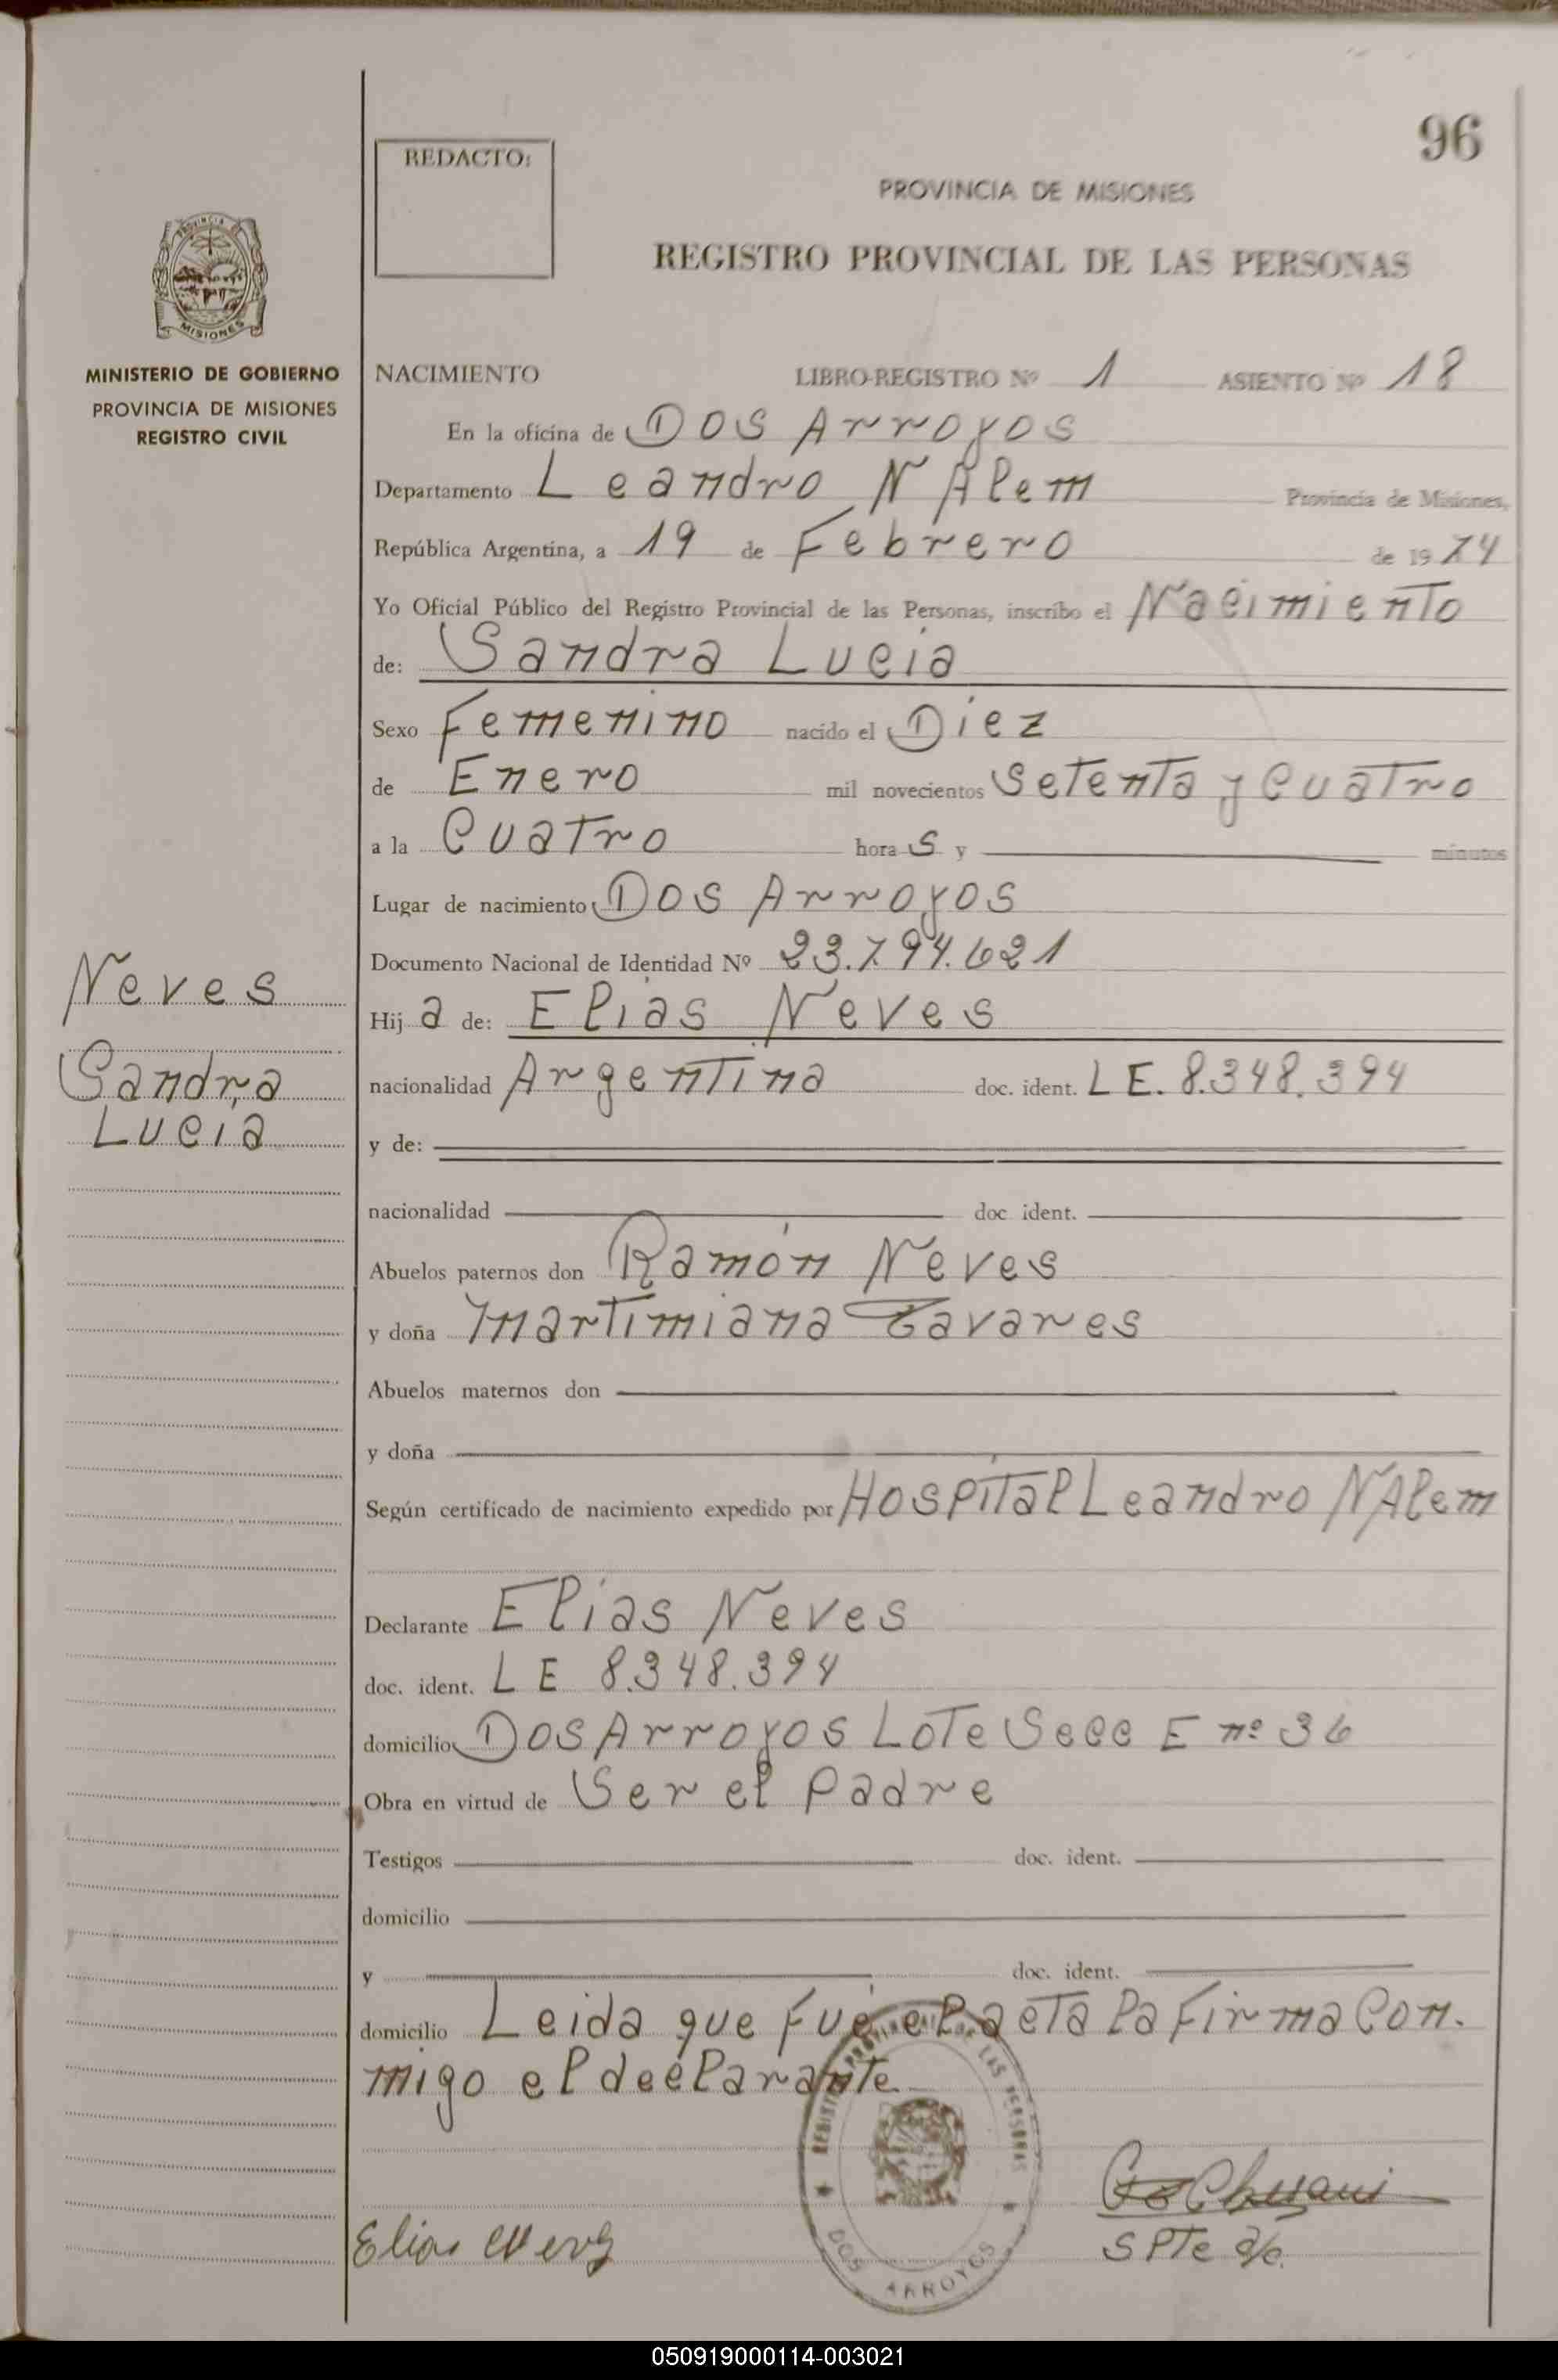 96
REDACTO:
PROVINCIA DE MISIONES
REGISTRO PROVINCIAL DE LAS PERSONAS
PROVINCIA
MISIONES
MINISTERIO DE GOBIERNO
PROVINCIA DE MISIONES
REGISTRO CIVIL
NACIMIENTO LIBRO-REGISTRO Nº 1 ASIENTO Nº 18
En la oficina de DOS Arroyos
Departamento Leandro N Alem Provincia de Misiones,
República Argentina, a 19 de Febrero de 1974
Yo Oficial Público del Registro Provincial de las Personas, inscribo el Nacimiento
de: Sandra Lucia
Sexo Femenino nacido el Diez
de Enero mil novecientos Setenta y Cuatro
a la Cuatro hora S y minutos
Lugar de nacimiento DOS Arroyos
Documento Nacional de Identidad Nº 23.794.621
Neves
Sandra
Lucia
Hij a de: Elias Neves
nacionalidad Argentina doc. ident. LE. 8.348.394
y de:
nacionalidad doc. ident.
Abuelos paternos don Ramón Neves
y doña Martimiana Tavares
Abuelos maternos don
y doña
Según certificado de nacimiento expedido por Hospital Leandro N Alem
Declarante Elias Neves
doc. ident. LE 8.348.394
domicilio DOS Arroyos Lote Secc E nº 36
Obra en virtud de Ser el Padre
Testigos doc. ident.
domicilio
y doc. ident.
domicilio Leida que Fué el acta la Firma Con.
migo el declarante
REGISTRO PROVINCIAL DE LAS PERSONAS
DOS ARROYOS
Elias Neves
S PTe a/c.
050919000114-003021